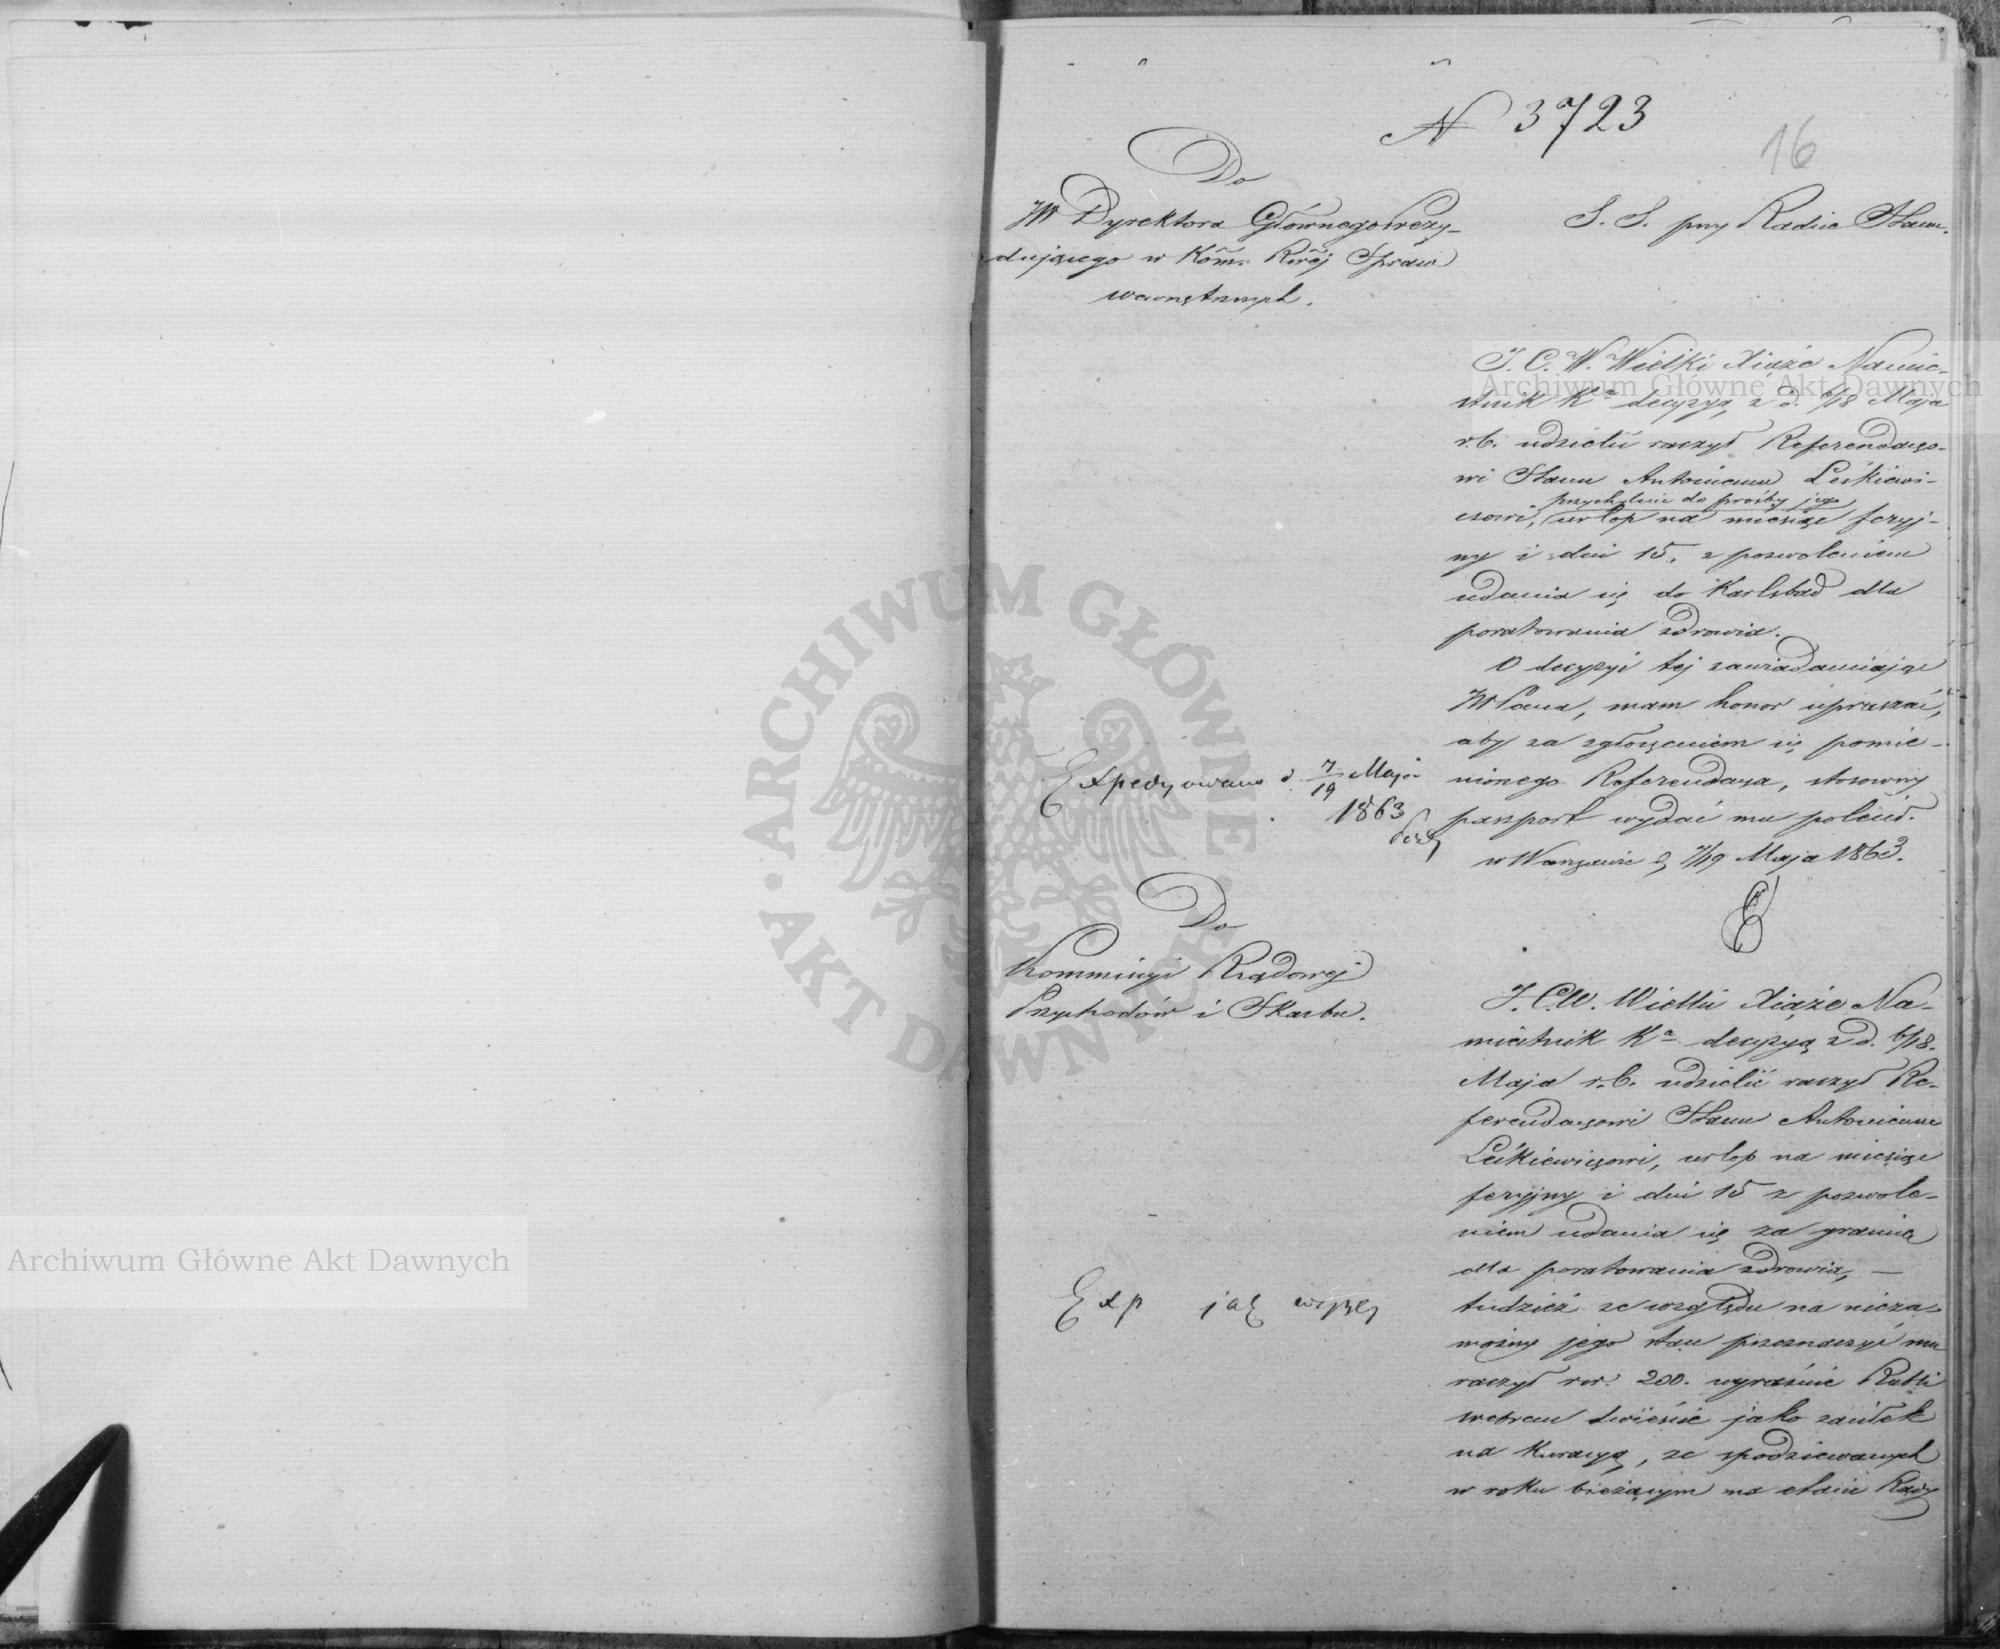 N 3723
16
Do
JW Dyrektora Głównego Prezy-
dującego w Kom: Rząj Spraw
wewnętrznych.
S. S. przy Radzie Stanu.
J. C. W. Wielki Xiąże Namie-
stnik Ka decyzyą z d. 6/18 Maja
r.b. udzielić raczył Referendarzo-
wi Stanu Antoniemu Leśkiewi-
przychylnie do prośby jego
czowi, urlop na miesiąc feryj-
ny i dni 15, z pozwoleniem
udania się do Karlsbad dla
poratowania zdrowia.
O decyzyi tej zawiadamiając
JW Pana, mam honor upraszać,
aby za zgłoszeniem się pomie-
nionego Referendarza, stosowny
paszport wydać mu polecił.
w Warszawie d. 7/19 Maja 1863.
Expedyowano d. 7/19 Maja
1863
Do
Kommissyi Rządowej
Przychodów i Skarbu.
J. C. W. Wielki Xiąże Na-
miestnik Ka decyzyą z d. 6/18.
Maja r.b. udzielić raczył Re-
ferendarzowi Stanu Antoniemu
Leśkiewiczowi, urlop na miesiąc
feryjny i dni 15 z pozwole-
niem udania się za granicę
dla poratowania zdrowia, —
tudzież ze względu na nieza-
możny jego stan przeznaczyć mu
raczył rsr. 200. wyraźnie Rubli
srebrem dwieście jako zasiłek
na kuracyą, ze spodziewanych
w roku bieżącym na etacie Rady
Exp jak wyżej
Archiwum Główne Akt Dawnych
Archiwum Główne Akt Dawnych
ARCHIWUM GŁÓWNE · AKT DAWNYCH ·